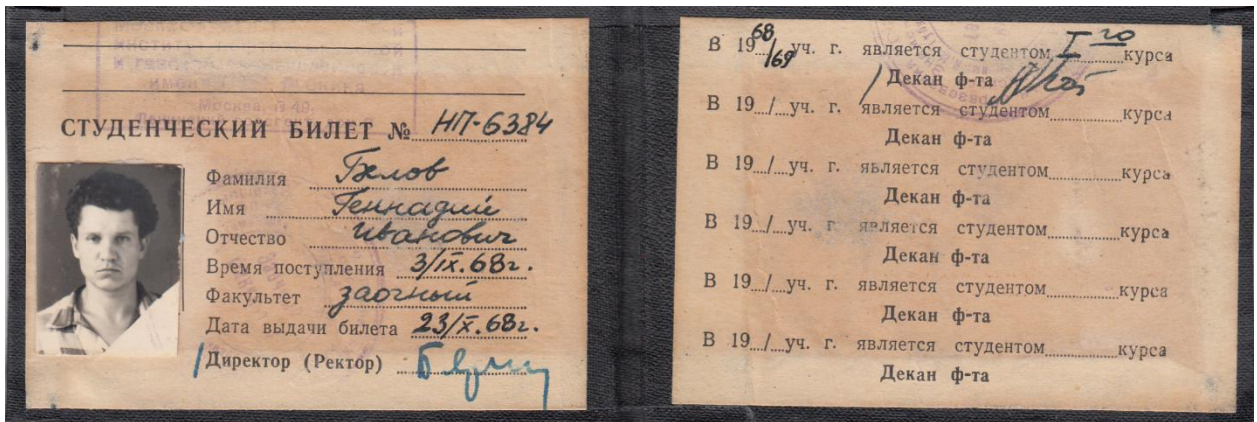 Москва, П-49,
СТУДЕНЧЕСКИЙ БИЛЕТ № НП-6384
Фамилия Белов
Имя Геннадий
Отчество Иванович
Время поступления 3/IX.68г.
Факультет заочный
Дата выдачи билета 23/X.68г.
Директор (Ректор)
В 1968/69 уч. г. является студентом I го курса
Декан ф-та
В 19 / уч. г. является студентом курса
Декан ф-та
В 19 / уч. г. является студентом курса
Декан ф-та
В 19 / уч. г. является студентом курса
Декан ф-та
В 19 / уч. г. является студентом курса
Декан ф-та
В 19 / уч. г. является студентом курса
Декан ф-та